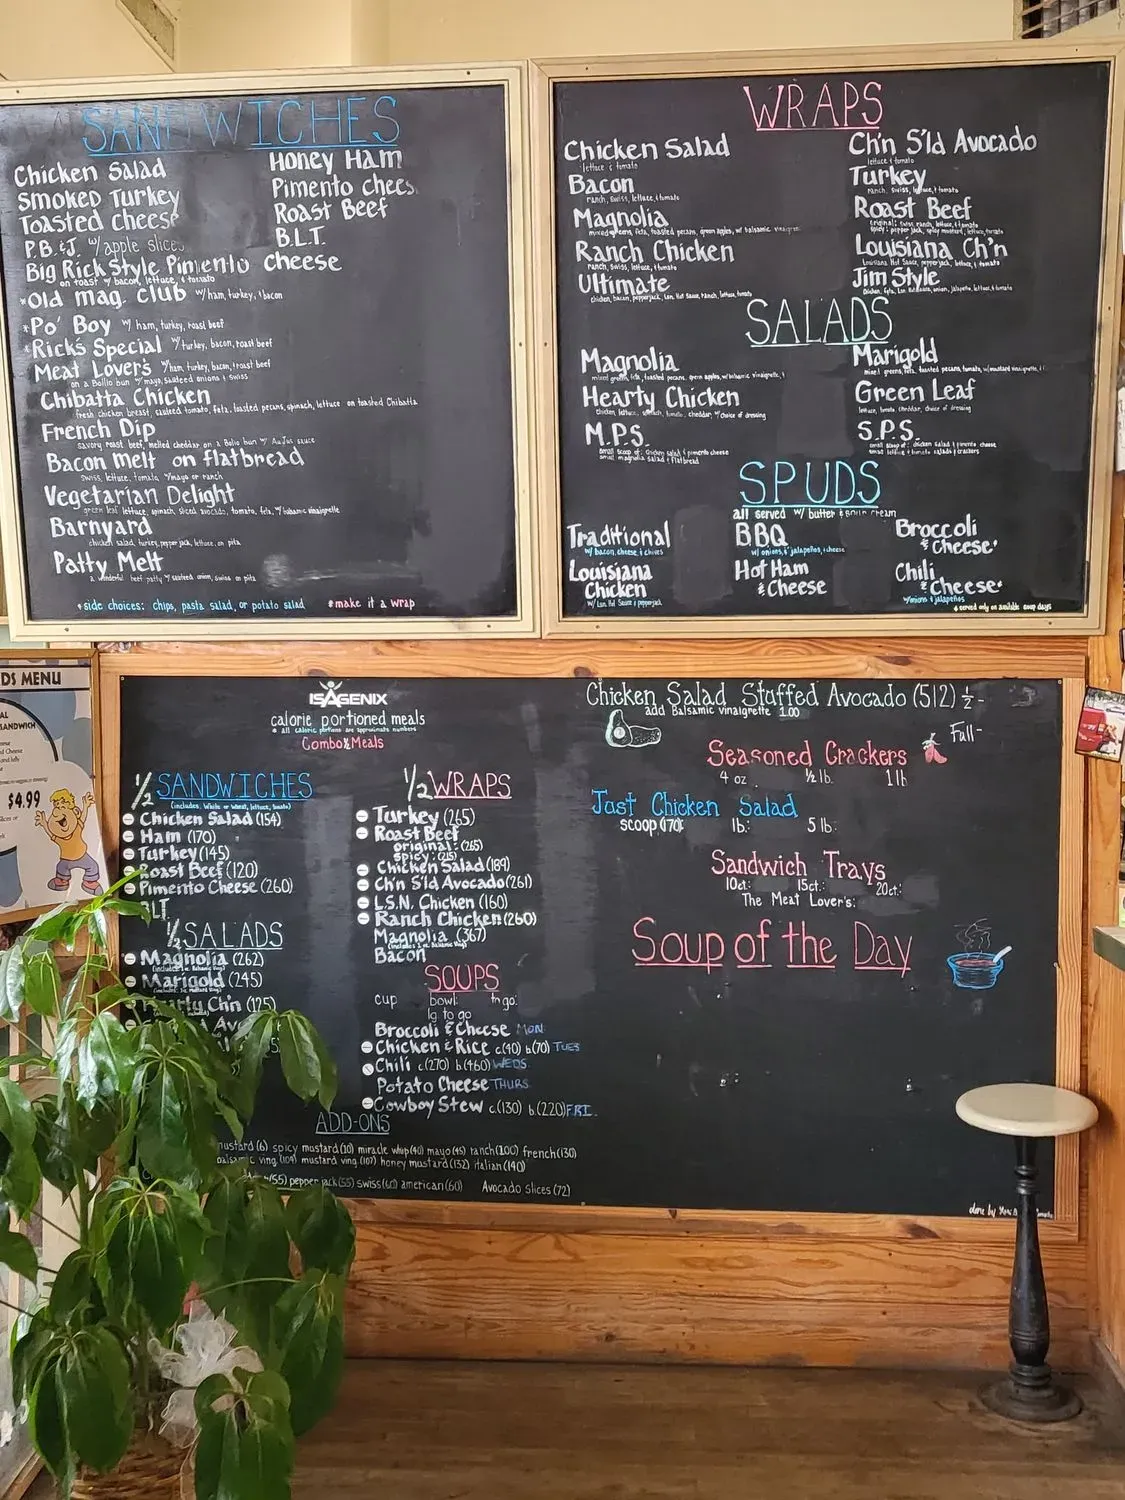 SANDWICHES
Chicken Salad
Smoked Turkey
Toasted Cheese
P.B. & J. w/ apple slices
Honey Ham
Pimento chees
Roast Beef
B.L.T.
Big Rick Style Pimento cheese
on toast w/ bacon, lettuce, & tomato
*Old mag. club w/ ham, turkey, & bacon
*Po' Boy w/ ham, turkey, roast beef
*Rick's Special w/ turkey, bacon, roast beef
Meat Lovers w/ ham, turkey, bacon, & roast beef
on a Bolio bun w/ mayo, sauteed onions & swiss
Chibatta Chicken
fresh chicken breast, sauteed tomato, feta, toasted pecans, spinach, lettuce on toasted Chibatta
French Dip
savory roast beef, melted cheddar on a Bolio bun w/ Au Jus sauce
Bacon Melt on flatbread
swiss, lettuce, tomato, w/ mayo or ranch
Vegetarian Delight
green leaf lettuce, spinach, sliced avocado, tomato, feta, w/ balsamic vinaigrette
Barnyard
chicken salad, turkey, pepper jack, lettuce, on pita
Patty Melt
a wonderful beef patty w/ sauteed onion, swiss on pita
*side choices: chips, pasta salad, or potato salad *make it a wrap
WRAPS
Chicken Salad
lettuce & tomato
Bacon
ranch, swiss, lettuce, & tomato
Magnolia
mixed greens, feta, toasted pecans, green apples, w/ balsamic
Ranch Chicken
ranch, swiss, lettuce, & tomato
Ultimate
chicken, bacon, pepperjack, Lou. Hot Sauce, ranch, lettuce, tomato
Ch'n S'ld Avocado
lettuce & tomato
Turkey
ranch, swiss, lettuce, & tomato
Roast Beef
original: swiss, ranch, lettuce, & tomato
spicy: pepper jack, spicy mustard, lettuce, tomato
Louisiana Ch'n
Louisiana Hot Sauce, pepperjack, lettuce, & tomato
Jim Style
Chicken, feta, Lou. Hot Sauce, onion, jalapeño, lettuce, & tomato
SALADS
Magnolia
mixed greens, feta, toasted pecans, green apples, w/ balsamic vinaigrette
Hearty Chicken
chicken, lettuce, spinach, tomato, cheddar, w/ choice of dressing
M.P.S.
small scoop of: chicken salad & pimento cheese
small magnolia salad & flatbread
Marigold
mixed greens, feta, toasted pecans, tomato, w/ mustard vinaigrette
Green Leaf
lettuce, tomato, cheddar, choice of dressing
S.P.S.
small scoop of: chicken salad & pimento cheese
small lettuce & tomato salads & crackers
SPUDS
all served w/ butter & sour cream
Traditional
w/ bacon, cheese & chives
Louisiana
Chicken
w/ Lou. Hot Sauce & pepperjack
BBQ
w/ onions, & jalapeños, & cheese
Hot Ham
& Cheese
Broccoli
& Cheese*
Chili
& Cheese*
w/ onions & jalapeños
* served only on available soup days
DS MENU
AL
SANDWICH
$4.99
ISAGENIX
calorie portioned meals
* all caloric portions are approximate numbers
Combo & Meals
1/2 SANDWICHES
(includes: White or wheat, lettuce, tomato)
Chicken Salad (154)
Ham (170)
Turkey (145)
Roast Beef (120)
Pimento Cheese (260)
BLT
1/2 SALADS
Magnolia (262)
Marigold (245)
Ch'n (125)
1/2 WRAPS
Turkey (265)
Roast Beef
original: (265)
spicy: (215)
Chicken Salad (189)
Ch'n S'ld Avocado (261)
L.S.N. Chicken (160)
Ranch Chicken (260)
Magnolia (367)
(includes 1 oz. Balsamic Ving)
Bacon
SOUPS
cup bowl: to go:
lg to go
Broccoli & Cheese MON
Chicken & Rice c.(40) b.(70) TUES
Chili c.(270) b.(460) WEDS.
Potato Cheese THURS.
Cowboy Stew c.(130) b.(220) FRI.
ADD-ONS
mustard (6) spicy mustard (10) miracle whip (40) mayo (45) ranch (100) french (130)
balsamic ving. (104) mustard ving. (107) honey mustard (132) italian (140)
(55) pepper jack (55) swiss (60) american (60) Avocado Slices (72)
Chicken Salad Stuffed Avocado (512) 1/2 -
add Balsamic vinaigrette 1.00
Full -
Seasoned Crackers
4 oz 1/2 lb. 1 lb
Just Chicken Salad
scoop (170): lb.: 5 lb:
Sandwich Trays
10ct: 15ct.: 20ct.:
The Meat Lover's:
Soup of the Day
done by